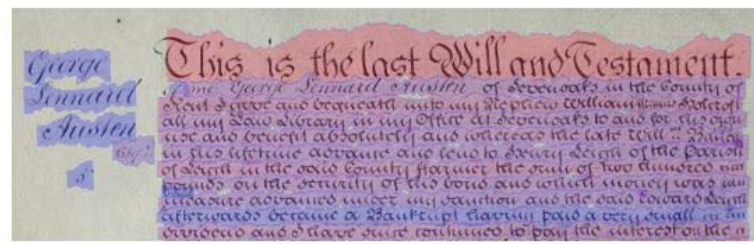 George
Lennard
Austen
Esqr.
This is the last Will and Testament.
of me George Lennard Austen of Sevenoaks in the County of
Kent I give and bequeath unto my Nephew William
all my Law Library in my Office at Sevenoaks to and for his own
use and benefit absolutely and whereas the late Willm.
in his lifetime advance and lend to Henry Leigh of the Parish
of Leigh in the said County Farmer the sum of two hundred
pounds on the security of his bond and which money was in
measure advanced under my sanction and the said Edward
afterwards became a Bankrupt having paid a very small
dividend and I have since continued to pay the interest on the